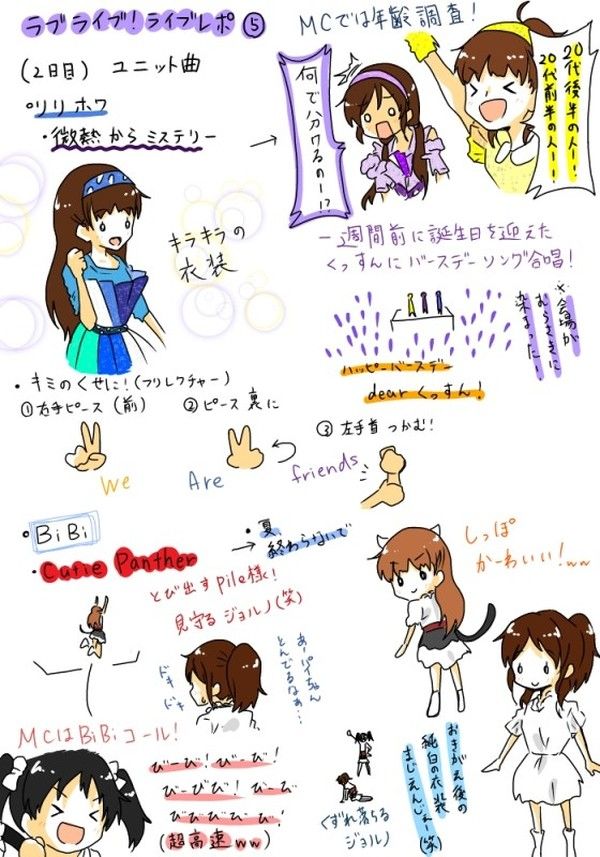 ラブライブ！ライブレポ ⑤
(2日目) ユニット曲
・リリホワ
・微熱からミステリー
→
MCでは年齢調査！
何で分けるのー!?
20代後半の人ー！
20代前半の人ー！
キラキラの
衣装
一週間前に誕生日を迎えた
くっすんにバースデーソング合唱！
※会場が
むらさきに
染まった！
ハッピーバースデー
dear くっすん！
・キミのくせに！(フリレクチャー)
①右手ピース(前)
②ピース裏に
③左手首つかむ！
We
Are
friends
・BiBi
・Cutie Panther
→
・夏、
終わらないで
とび出すPile様！
見守るジョルノ(笑)
あーパイちゃん
とんでるなぁ…
ドキ
ドキ
しっぽ
かーわいい！ww
MCはBiBiコール！
びーび！びーび！
びーびび！びーび
びびびびーび！
(超高速ww)
くずれ落ちる
ジョルノ
おきがえ後の
純白の衣装
まじえんじぇー(笑)